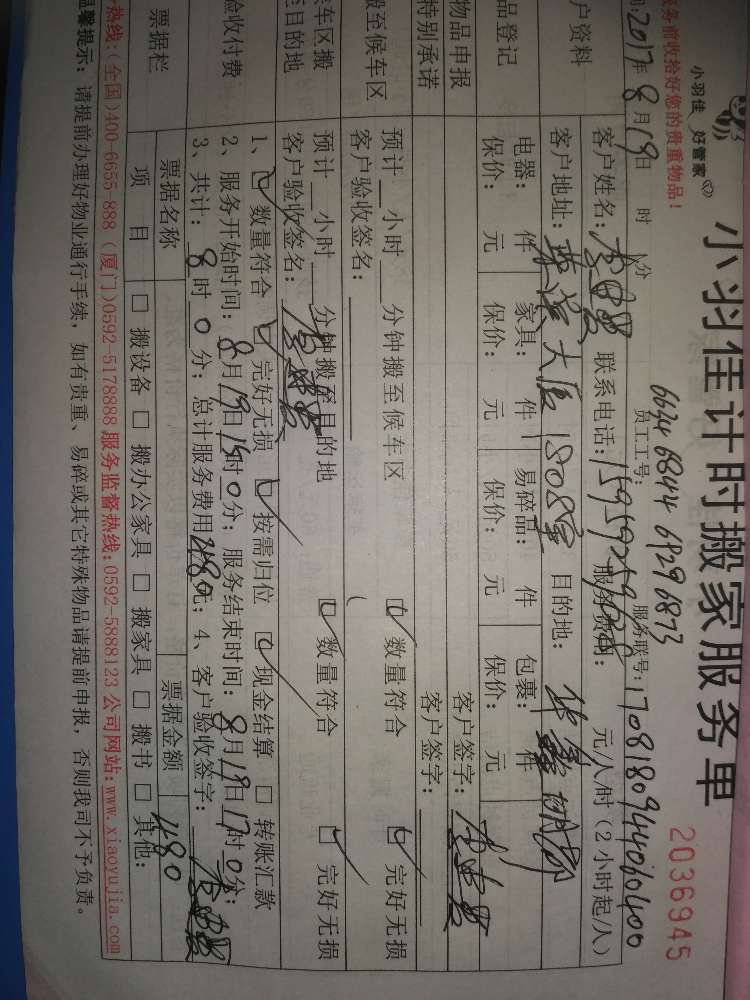 服务前收拾好您的贵重物品!
小羽佳 好管家
小羽佳计时搬家服务单
2036945
6624 6844 6929 6873
2017年8月19日 时 分
员工工号:
服务联号:
户资料
客户姓名:
联系电话:
元/人/时(2小时起/人)
客户地址:
大厦
目的地:
品登记
电器: 件 家具: 件 易碎品: 件 包裹: 件
保价: 元 保价: 元 保价: 元 保价: 元
物品申报
特别承诺
客户签字:
客户签字:
搬至候车区
预计 小时 分钟搬至候车区 数量符合 完好无损
客户验收签名:
候车区搬
至目的地
预计 小时 分钟搬至目的地 数量符合 完好无损
客户验收签名:
验收付费
1、 数量符合 完好无损 按需归位 现金结算 转账汇款
2、服务开始时间:8月19日15时0分;服务结束时间:8月19日17时0分;
3、共计:8时0分;总计服务费用480元;4、客户验收签字:
票据栏
票据名称
票据金额
480
项 目
搬设备 搬办公家具 搬家具 搬书 其他:
热线:(全国)400-6655-888 (厦门)0592-5178888 服务监督热线:0592-5888123 公司网站:www.xiaoyujia.com
温馨提示:请提前办理好物业通行手续,如有贵重、易碎或其它特殊物品请提前申报,否则我司不予负责。